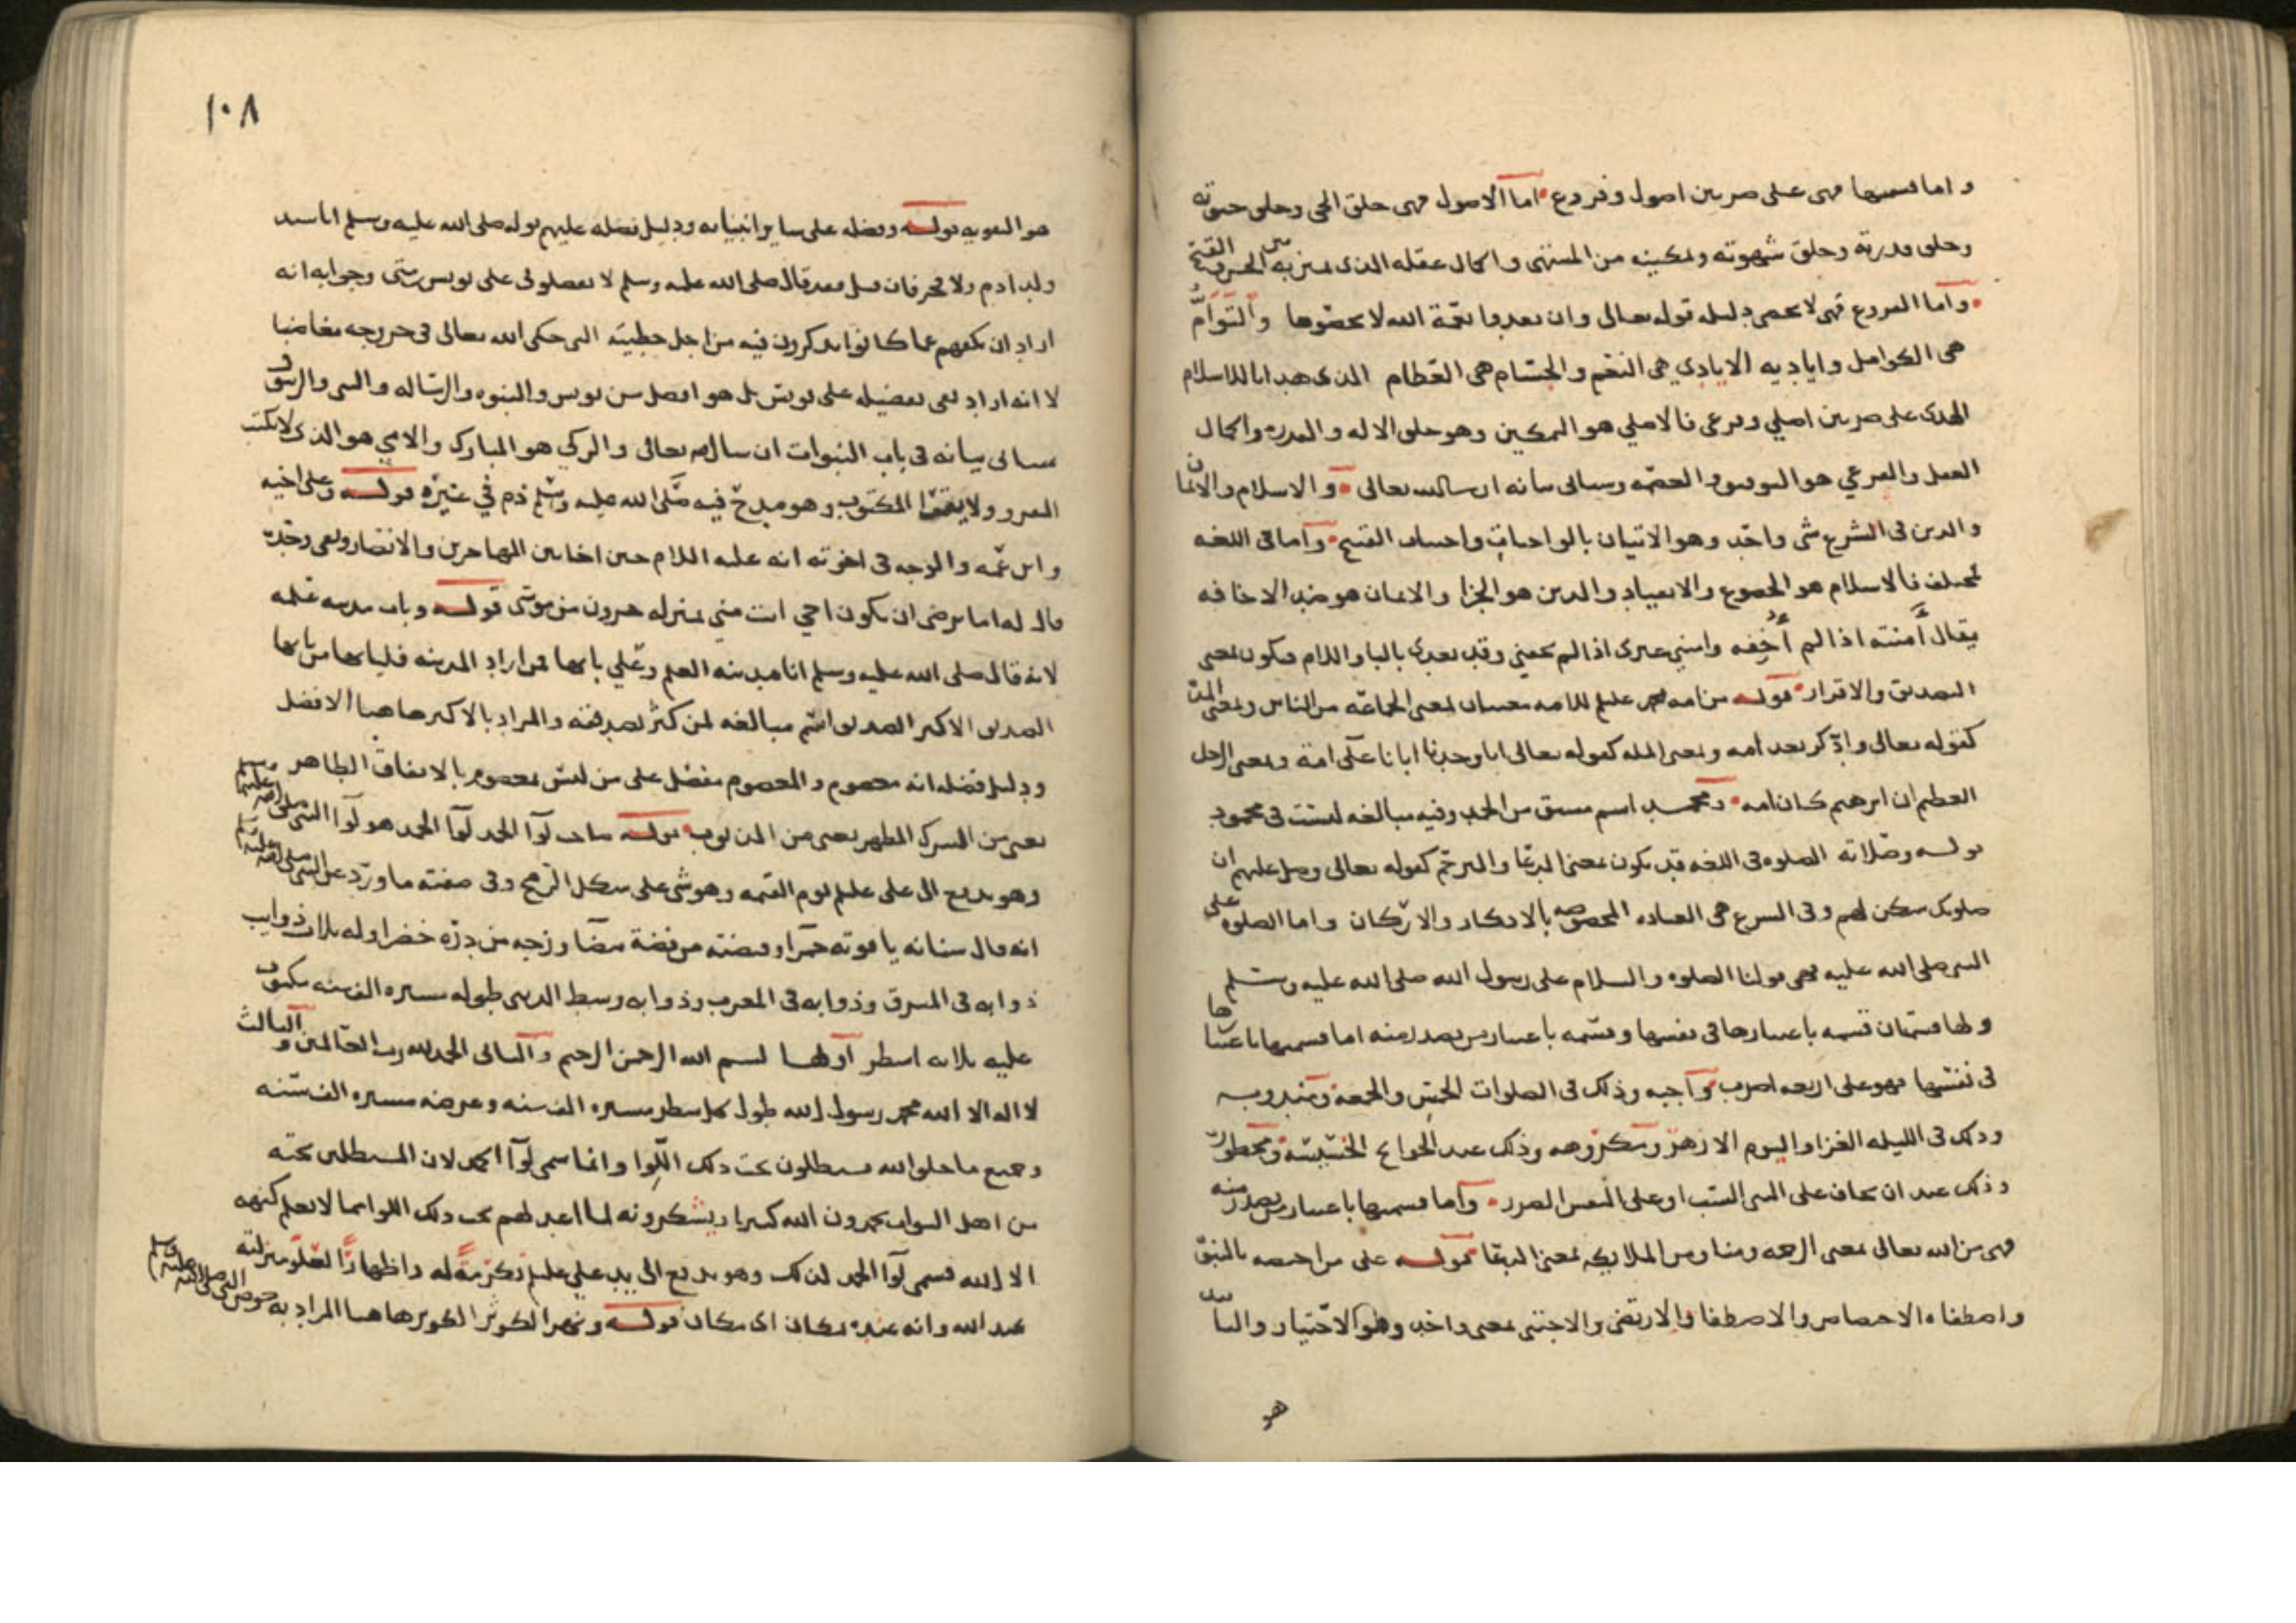 واما قسمتها فهى على ضربين اصول وفروع اما الاصول فهى خلق الحى وخلق حيوته
وخلق قدرته وخلق شهوته وتمكينه من المشتهى واكمال عقله الذى يميز به بين الحسن والقبيح
واما الفروع فهى لا تحصى دليله قوله تعالى وان تعدوا نعمة الله لا تحصوها والتوامُّ
هى الكوامل واياديه الايادي هى النعم والجسام هى العظام الذى هدانا للاسلام
الهدى على ضربين اصلي وفرعى فالاصلي هو التمكين وهو خلق الاله والقدره واكمال
العقل والفرعي هو التوفيق والعصمه وسياتى بيانه ان شاالله تعالى والاسلام والايمان
والدين فى الشرع شى واحد وهو الاتيان بالواجبات واجتناب القبيح واما فى اللغه
فمختلف فالاسلام هو الخضوع والانقياد والدين هو الجزا والايمان هو ضد الاخافه
يقال أمنته اذا لم أُخِفه وامنني غيرى اذا لم يخفني وقد يعدى بالبا واللام فيكون بمعنى
التصديق والاقرار قوله من امه محمد عليلم للامه معنيان بمعنى الجماعه من الناس وبمعنى
كقوله تعالى وادّكر بعد امه وبمعنى المله كقوله تعالى انا وجدنا ابانا على امة وبمعنى الرجل
العظيم ان ابرهيم كان امه ومحمد اسم مشتق من الحمد وفيه مبالغه ليست فى محمود
قوله وصلاته الصلوه فى اللغه قد يكون بمعنى الدعا والترحم كقوله تعالى وصل عليهم ان
صلوتك سكن لهم وفى الشرع هى العباده المخصوصه بالاذكار والاركان واما الصلوه على
النبى صلى الله عليه فهى قولنا الصلوه والسلام على رسول الله صلى الله عليه وسلم
ولها قسمتان قسمه باعتبارها فى نفسها وقسمه باعتبار من تصدر منه اما قسمتها باعتبارها
فى نفسها فهو على اربعه اضرب واجبه وذلك فى الصلوات الخمس والجمعه ومندوبه
وذلك فى الليله الغرا واليوم الازهر ومكروهه وذلك عند الحوائج الخسيسه ومحظوره
وذلك عند ان يخاف على النبى السب او على النفس الضرر واما قسمتها باعتبار من تصدر منه
فهى من الله تعالى بمعنى الرحمه ومنا ومن الملايكه بمعنى الدعا قوله على من اختصه بالنبوة
واصطفاه الاختصاص والاصطفا والارتضى والاجتبى بمعنى واحد وهو الاختيار
هو
١٠٨
هو التقويه قوله وفضله على ساير انبيايه ودليل فضله عليهم قوله صلى الله عليه وسلم انا سيد
ولد ادم ولا فخر فان قيل فقد قال صلى الله عليه وسلم لا تفضلوني على يونس بن متى وجوابه انه
اراد ان يكفهم عما كانوا يذكرون فيه من اجل خطيته التى حكى الله تعالى فى خروجه مغاضبا
لا انه اراد نفى تفضيله على يونس بل هو افضل من يونس والنبوه والرساله والنبى والرسول
سياتى بيانه فى باب النبوات ان شا الله تعالى والزكي هو المبارك والامي هو الذى لا يكتب
ولا يقرا المكتوب وهو مدح فيه صلى الله عليه وسلم ذم في غيره قوله وعلى اخيه
وابن عمه والوجه فى اخوته انه عليه السلام حين اخا بين المهاجرين والانصار وبقى وحده
قال له اما ترضى ان تكون اخي انت مني بمنزله هرون من موسى قوله وباب مدينه علمه
لانه قال صلى الله عليه وسلم انا مدينه العلم وعلي بابها فمن اراد المدينه فلياتها من بابها
الصديق الاكبر الصديق اسم مبالغه لمن كثر تصديقه والمراد بالاكبر هاهنا الافضل
ودليل فضله انه معصوم والمعصوم مفضل على من ليس بمعصوم بالاتفاق الطاهر
يعنى من الشرك المطهر يعنى من الذنوب قوله صاحب لوآ الحمد لوآ الحمد هو لوآ النبى صلى الله عليه وسلم
وهو يدفع الى على عليلم يوم القيمه وهو شى على شكل الرمح وفى صفته ما ورد عن النبى صلى الله عليه وسلم
انه قال سنانه ياقوته حمرا وقبضته من فضة بيضا وزجه من درّه خضرا وله ثلاث ذوايب
ذوابه فى المشرق وذوابه فى المغرب وذوابه وسط الدنيا طوله مسيره الف سنه مكتوب
عليه ثلاثه اسطر اولها بسم الله الرحمن الرحيم والثانى الحمد لله رب العالمين والثالث
لا اله الا الله محمد رسول الله طول كل سطر مسيره الف سنه وعرضه مسيره الف سنه
وجميع ما خلق الله يستظلون تحت ذلك اللوا وانما سمى لوآ الحمد لان المستظلين تحته
من اهل الثواب يحمدون الله كثيرا ويشكرونه لما اعد لهم تحت ذلك اللوا مما لا يعلم كنهه
الا الله فسمى لوآ الحمد لذلك وهو يدفع الى يد علي عليلم تكرمةً له واظهارًا لعلو منزلته
عند الله وانه عنده بمكان اى مكان قوله ونهر الكوثر الكوثر هاهنا المراد به حوض النبى صلى الله عليه وسلم